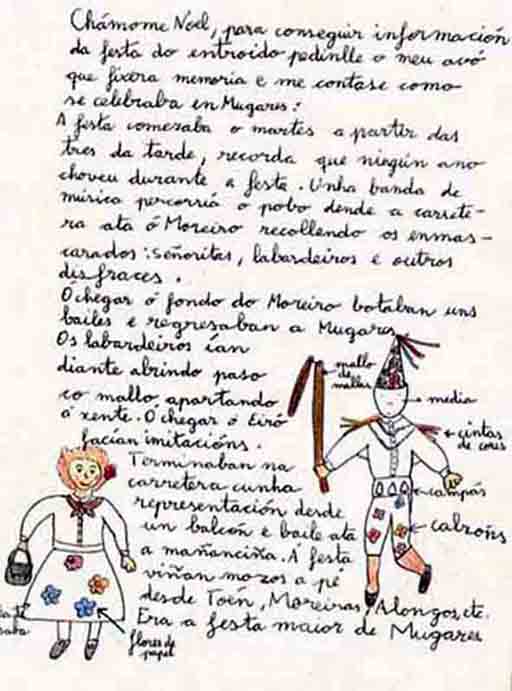 Chámome Noel, para conseguir información
da festa do entroido pedinlle o meu avó
que fixera memoria e me contase como
se celebraba en Mugares:
A festa comezaba o martes a partir das
tres da tarde, recorda que ningún ano
choveu durante a festa. Unha banda de
música percorría o pobo dende a carrete-
ra ata ó Moreiro recollendo os enmas-
carados: señoritas, labardeiros e outros
disfraces.
Óchegar ó fondo do Moreiro botaban uns
bailes e regresaban a Mugares.
Os labardeiros ían
diante abrindo paso
co mallo apartando
á xente. Óchegar ó Eiró
facían imitacións.
Terminaban na
carretera cunha
representación desde
un balcón e baile ata
a mañanciña. Á festa
viñan mozos a pé
desde Toén, Moreiras, Alongos, etc.
Era a festa maior de Mugares
mallo
de
mallar
media
cintas
de cores
campás
calzóns
flores de
papel